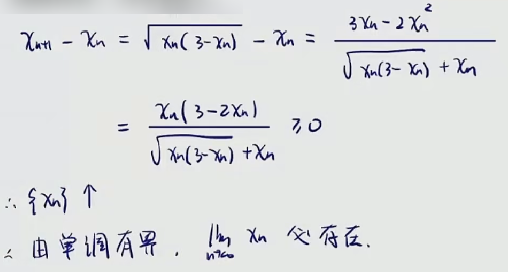 xₙ₊₁ - xₙ = √(xₙ(3-xₙ)) - xₙ = (3xₙ - 2xₙ²) / (√(xₙ(3-xₙ)) + xₙ)
= xₙ(3-2xₙ) / (√(xₙ(3-xₙ)) + xₙ) ≥ 0
∴ {xₙ} ↑
∴ 由单调有界, lim n→∞ xₙ 必存在.